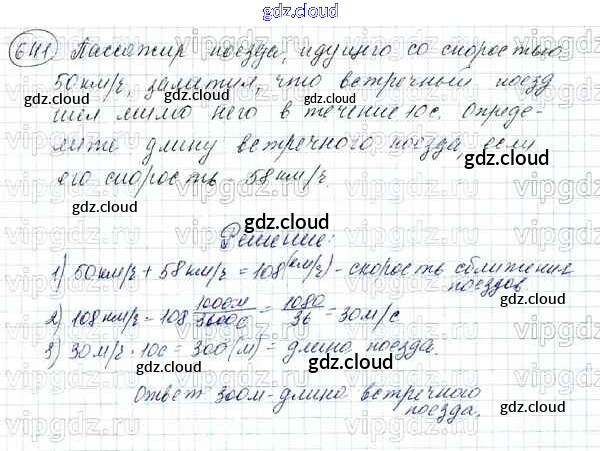 gdz.cloud
641 Пассажир поезда, идущего со скоростью
50 км/ч, заметил, что встречный поезд
gdz.cloud gdz.cloud
шёл мимо него в течение 10с. Опреде-
лите длину встречного поезда, если
gdz.cloud
его скорость - 58 км/ч.
gdz.cloud
gdz.cloud
Решение:
1) 50км/ч + 58км/ч = 108(км/ч) - скорость сближения
поездов
gdz.cloud gdz.cloud
2) 108км/ч = 108 1000м/3600с = 1080/36 = 30м/с
3) 30м/ч · 10с = 300(м) = длина поезда.
gdz.cloud
Ответ 300м - длина встречного
поезда.
gdz.cloud gdz.cloud
vipgdz